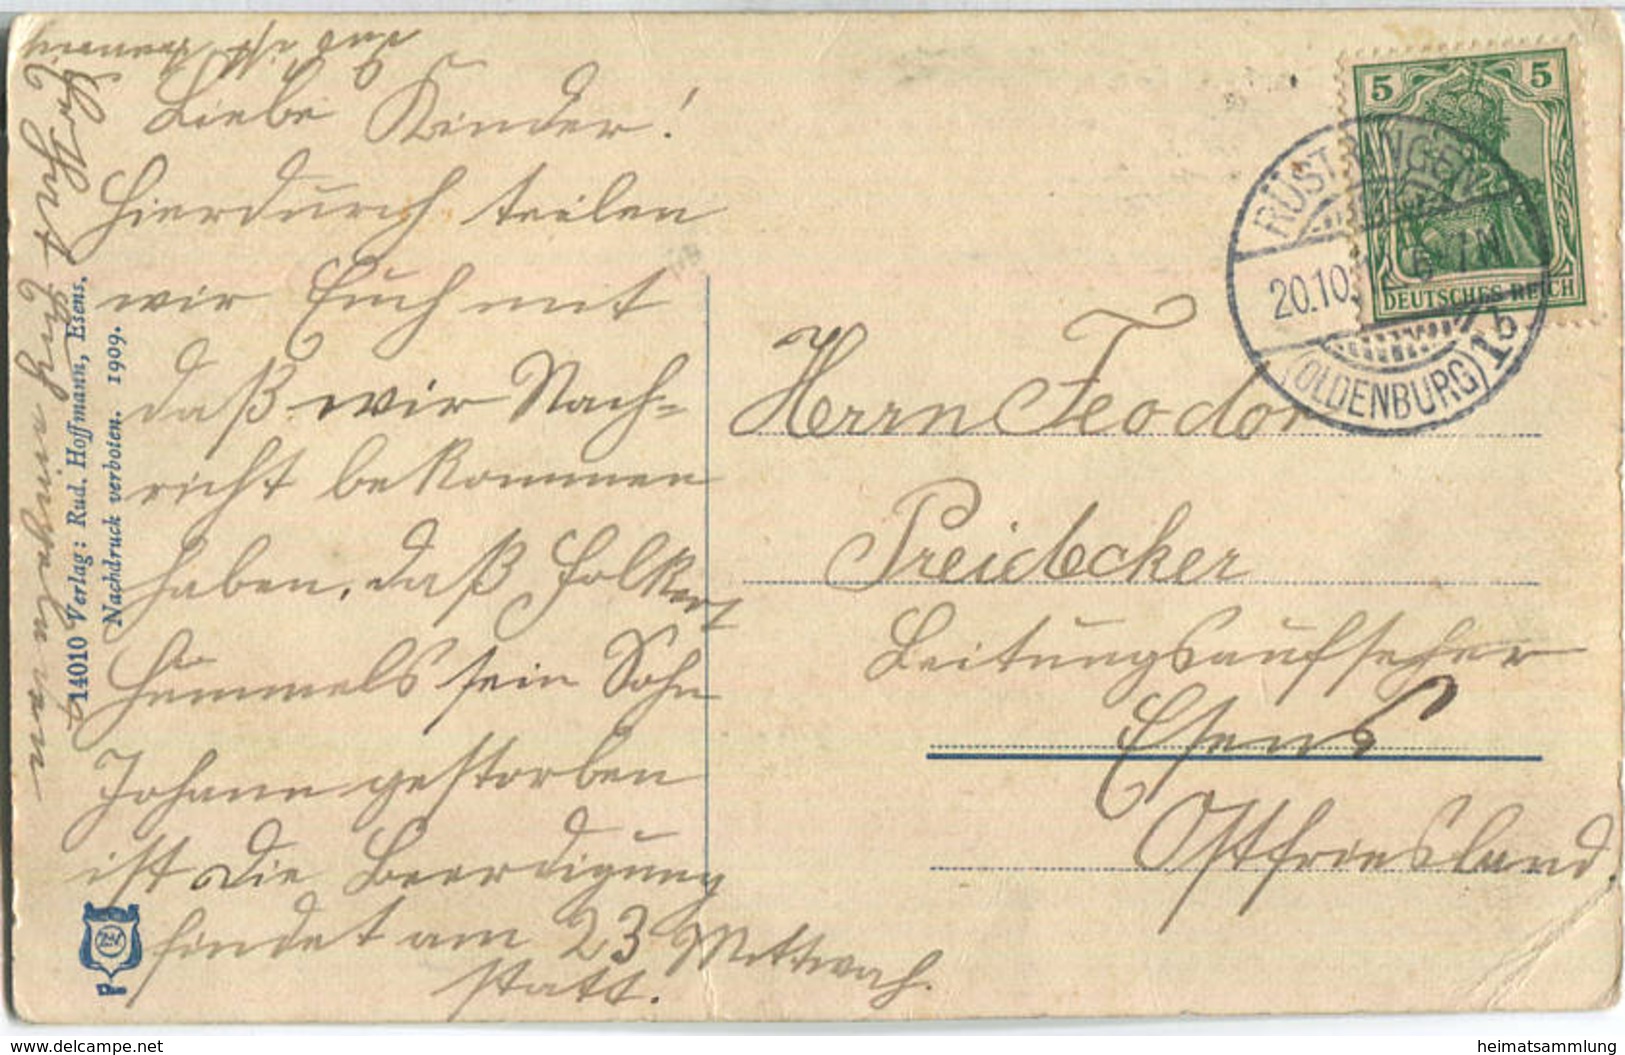 Liebe Kinder!
Hierdurch teilen
wir Euch mit
daß wir Nach=
richt bekommen
haben, daß Folkert
Hümmels sein Sohn
Johann gestorben
ist die Beerdigung
findet am 23 Mittwoch
statt.
14010 Verlag: Rud. Hoffmann, Esens.
Nachdruck verboten. 1909.
5 5
DEUTSCHES REICH
RÜSTRINGEN
20.10.
(OLDENBURG) 1 b
Herrn Feodor
Preidecker
Leitungsaufseher
Esens
Ostfriesland.
delcampe.net
heimatsammlung